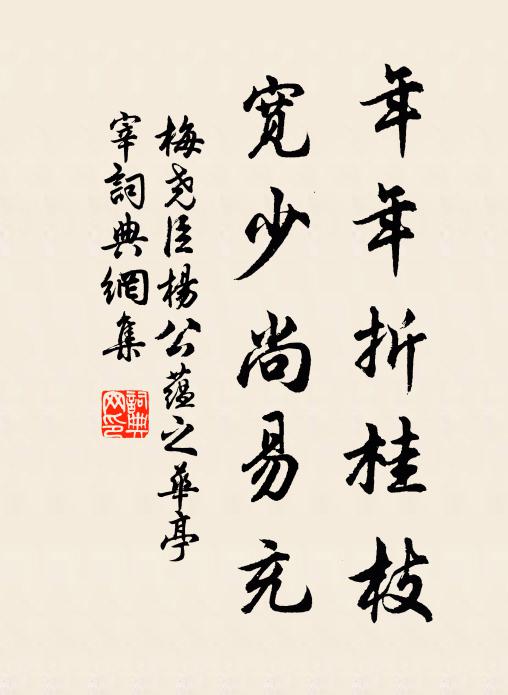 年年折桂枝
寛少尚易充
梅尧臣楊公蕴之華亭
宰詞典網集
詞典
网印